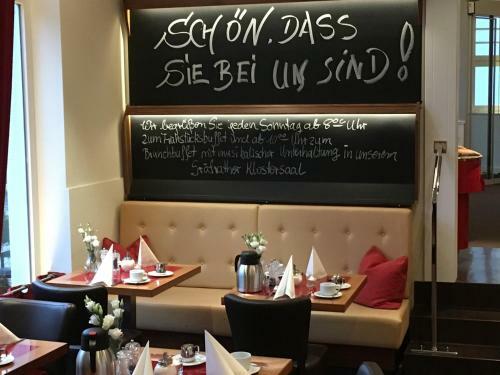 SCHÖN, DASS
SIE BEI UNS SIND!
Wir begrüßen Sie jeden Sonntag ab 8ºº Uhr
zum Frühstücksbuffet und ab 10ºº Uhr zum
Brunchbuffet mit musikalischer Unterhaltung in unserem
Gräfrather Klostersaal